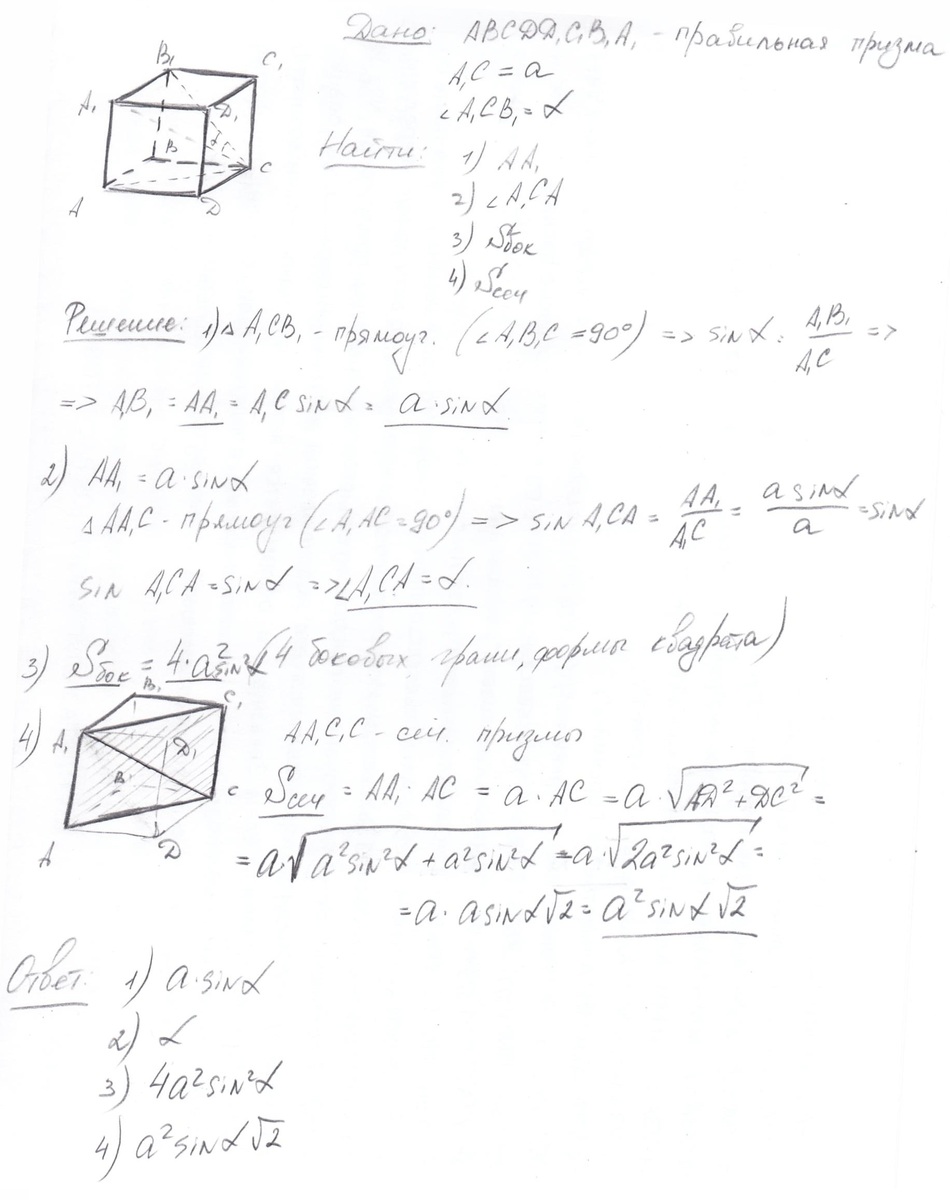 Дано: ABCDD₁C₁B₁A₁ - правильная призма
A₁C = a
∠A₁CB₁ = α
Найти: 1) AA₁
2) ∠A₁CA
3) Sбок
4) Sсеч
B₁ C₁
A₁ D₁
α
B C
A D
Решение: 1) △A₁CB₁ - прямоуг. (∠A₁B₁C = 90°) => sin α = A₁B₁/A₁C =>
=> A₁B₁ = AA₁ = A₁C sin α = a · sin α
2) AA₁ = a · sin α
△AA₁C - прямоуг (∠A₁AC = 90°) => sin A₁CA = AA₁/A₁C = a sin α/a = sin α
sin A₁CA = sin α => ∠A₁CA = α.
3) Sбок = 4 · a² sin² α (4 боковых грани, формы квадрата)
4) AA₁C₁C - сеч. призмы
B₁ C₁
A₁ D₁
B C
A D
Sсеч = AA₁ · AC = a · AC = a · √(AD² + DC²) =
= a · √(a² sin² α + a² sin² α) = a · √(2a² sin² α) =
= a · a sin α √2 = a² sin α √2
Ответ: 1) a · sin α
2) α
3) 4a² sin² α
4) a² sin α √2